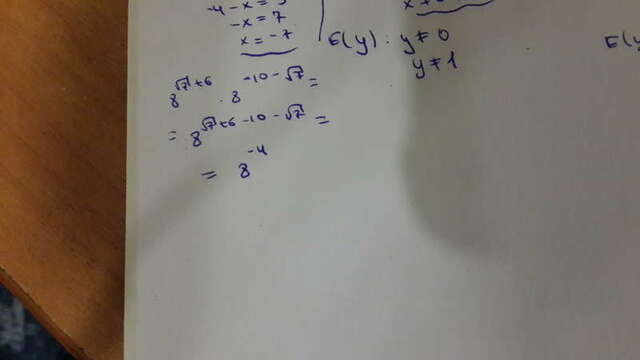 -4 - x =
-x = 7
x = -7
E(y): y ≠ 0
y ≠ 1
8^{√7+6} · 8^{-10-√7} =
= 8^{√7+6-10-√7} =
= 8^{-4}